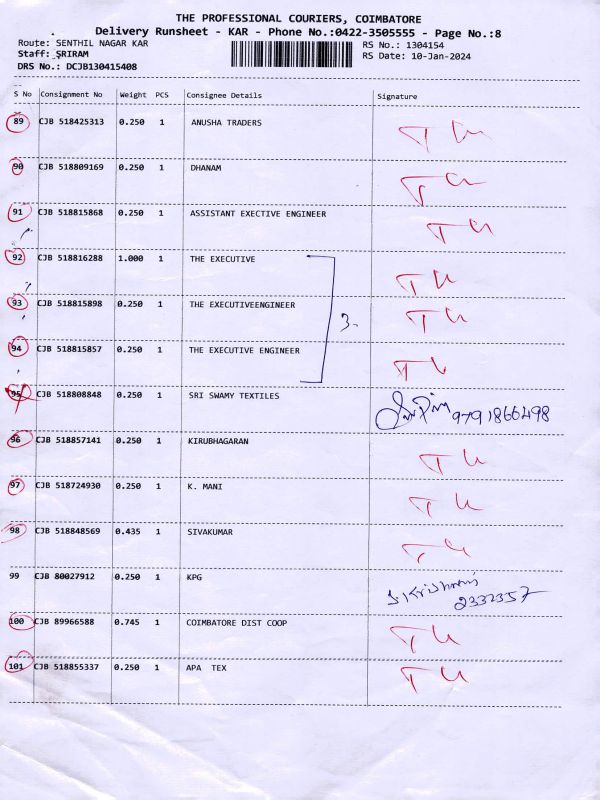 THE PROFESSIONAL COURIERS, COIMBATORE
Delivery Runsheet - KAR - Phone No.:0422-3505555 - Page No.:8
Route: SENTHIL NAGAR KAR RS No.: 1304154
Staff: SRIRAM RS Date: 10-Jan-2024
DRS No.: DCJB130415408
S No Consignment No Weight PCS Consignee Details Signature
89 CJB 518425313 0.250 1 ANUSHA TRADERS
90 CJB 518809169 0.250 1 DHANAM
91 CJB 518815868 0.250 1 ASSISTANT EXECTIVE ENGINEER
92 CJB 518816288 1.000 1 THE EXECUTIVE
93 CJB 518815898 0.250 1 THE EXECUTIVEENGINEER
3-
94 CJB 518815857 0.250 1 THE EXECUTIVE ENGINEER
95 CJB 518808848 0.250 1 SRI SWAMY TEXTILES
9791866498
96 CJB 518857141 0.250 1 KIRUBHAGARAN
97 CJB 518724930 0.250 1 K. MANI
98 CJB 518848569 0.435 1 SIVAKUMAR
99 CJB 80027912 0.250 1 KPG
2332357
100 CJB 89966588 0.745 1 COIMBATORE DIST COOP
101 CJB 518855337 0.250 1 APA TEX